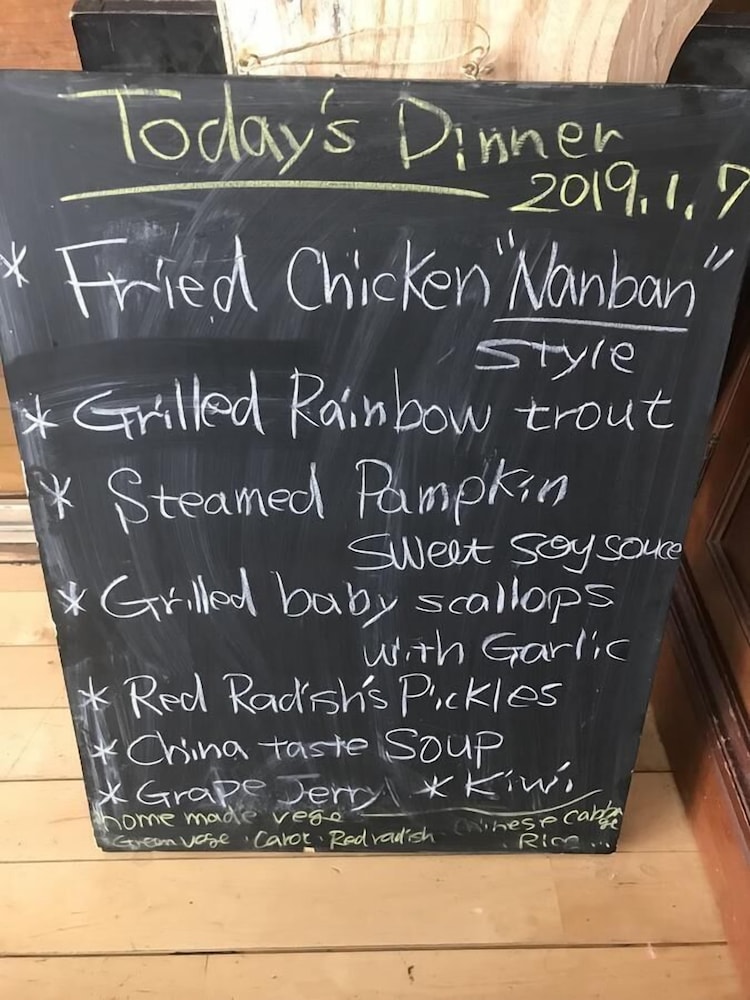 Today's Dinner
2019.1.7
* Fried Chicken "Nanban"
style
* Grilled Rainbow trout
* Steamed Pampkin
sweet soy sauce
* Grilled baby scallops
with Garlic
* Red Radish's Pickles
* China taste Soup
* Grape Jerry * Kiwi
home made vege Chinese cabbage
Green vege . Carot . Red radish . Rice ...